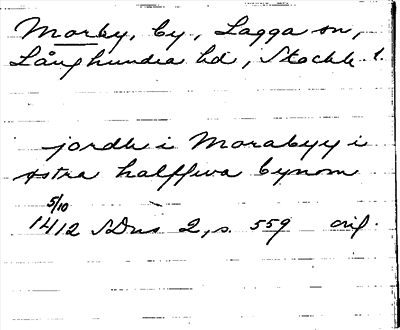 Morby, by, Lagga sn,
Långhundra hd, Stockh. l.
jordh i Morabyy i
østra halffwa bynom
5/10
1412 SDns 2, s. 559 orig.